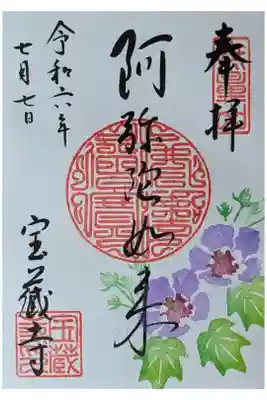 奉拝
阿弥陀如来
令和六年
七月七日
宝蔵寺